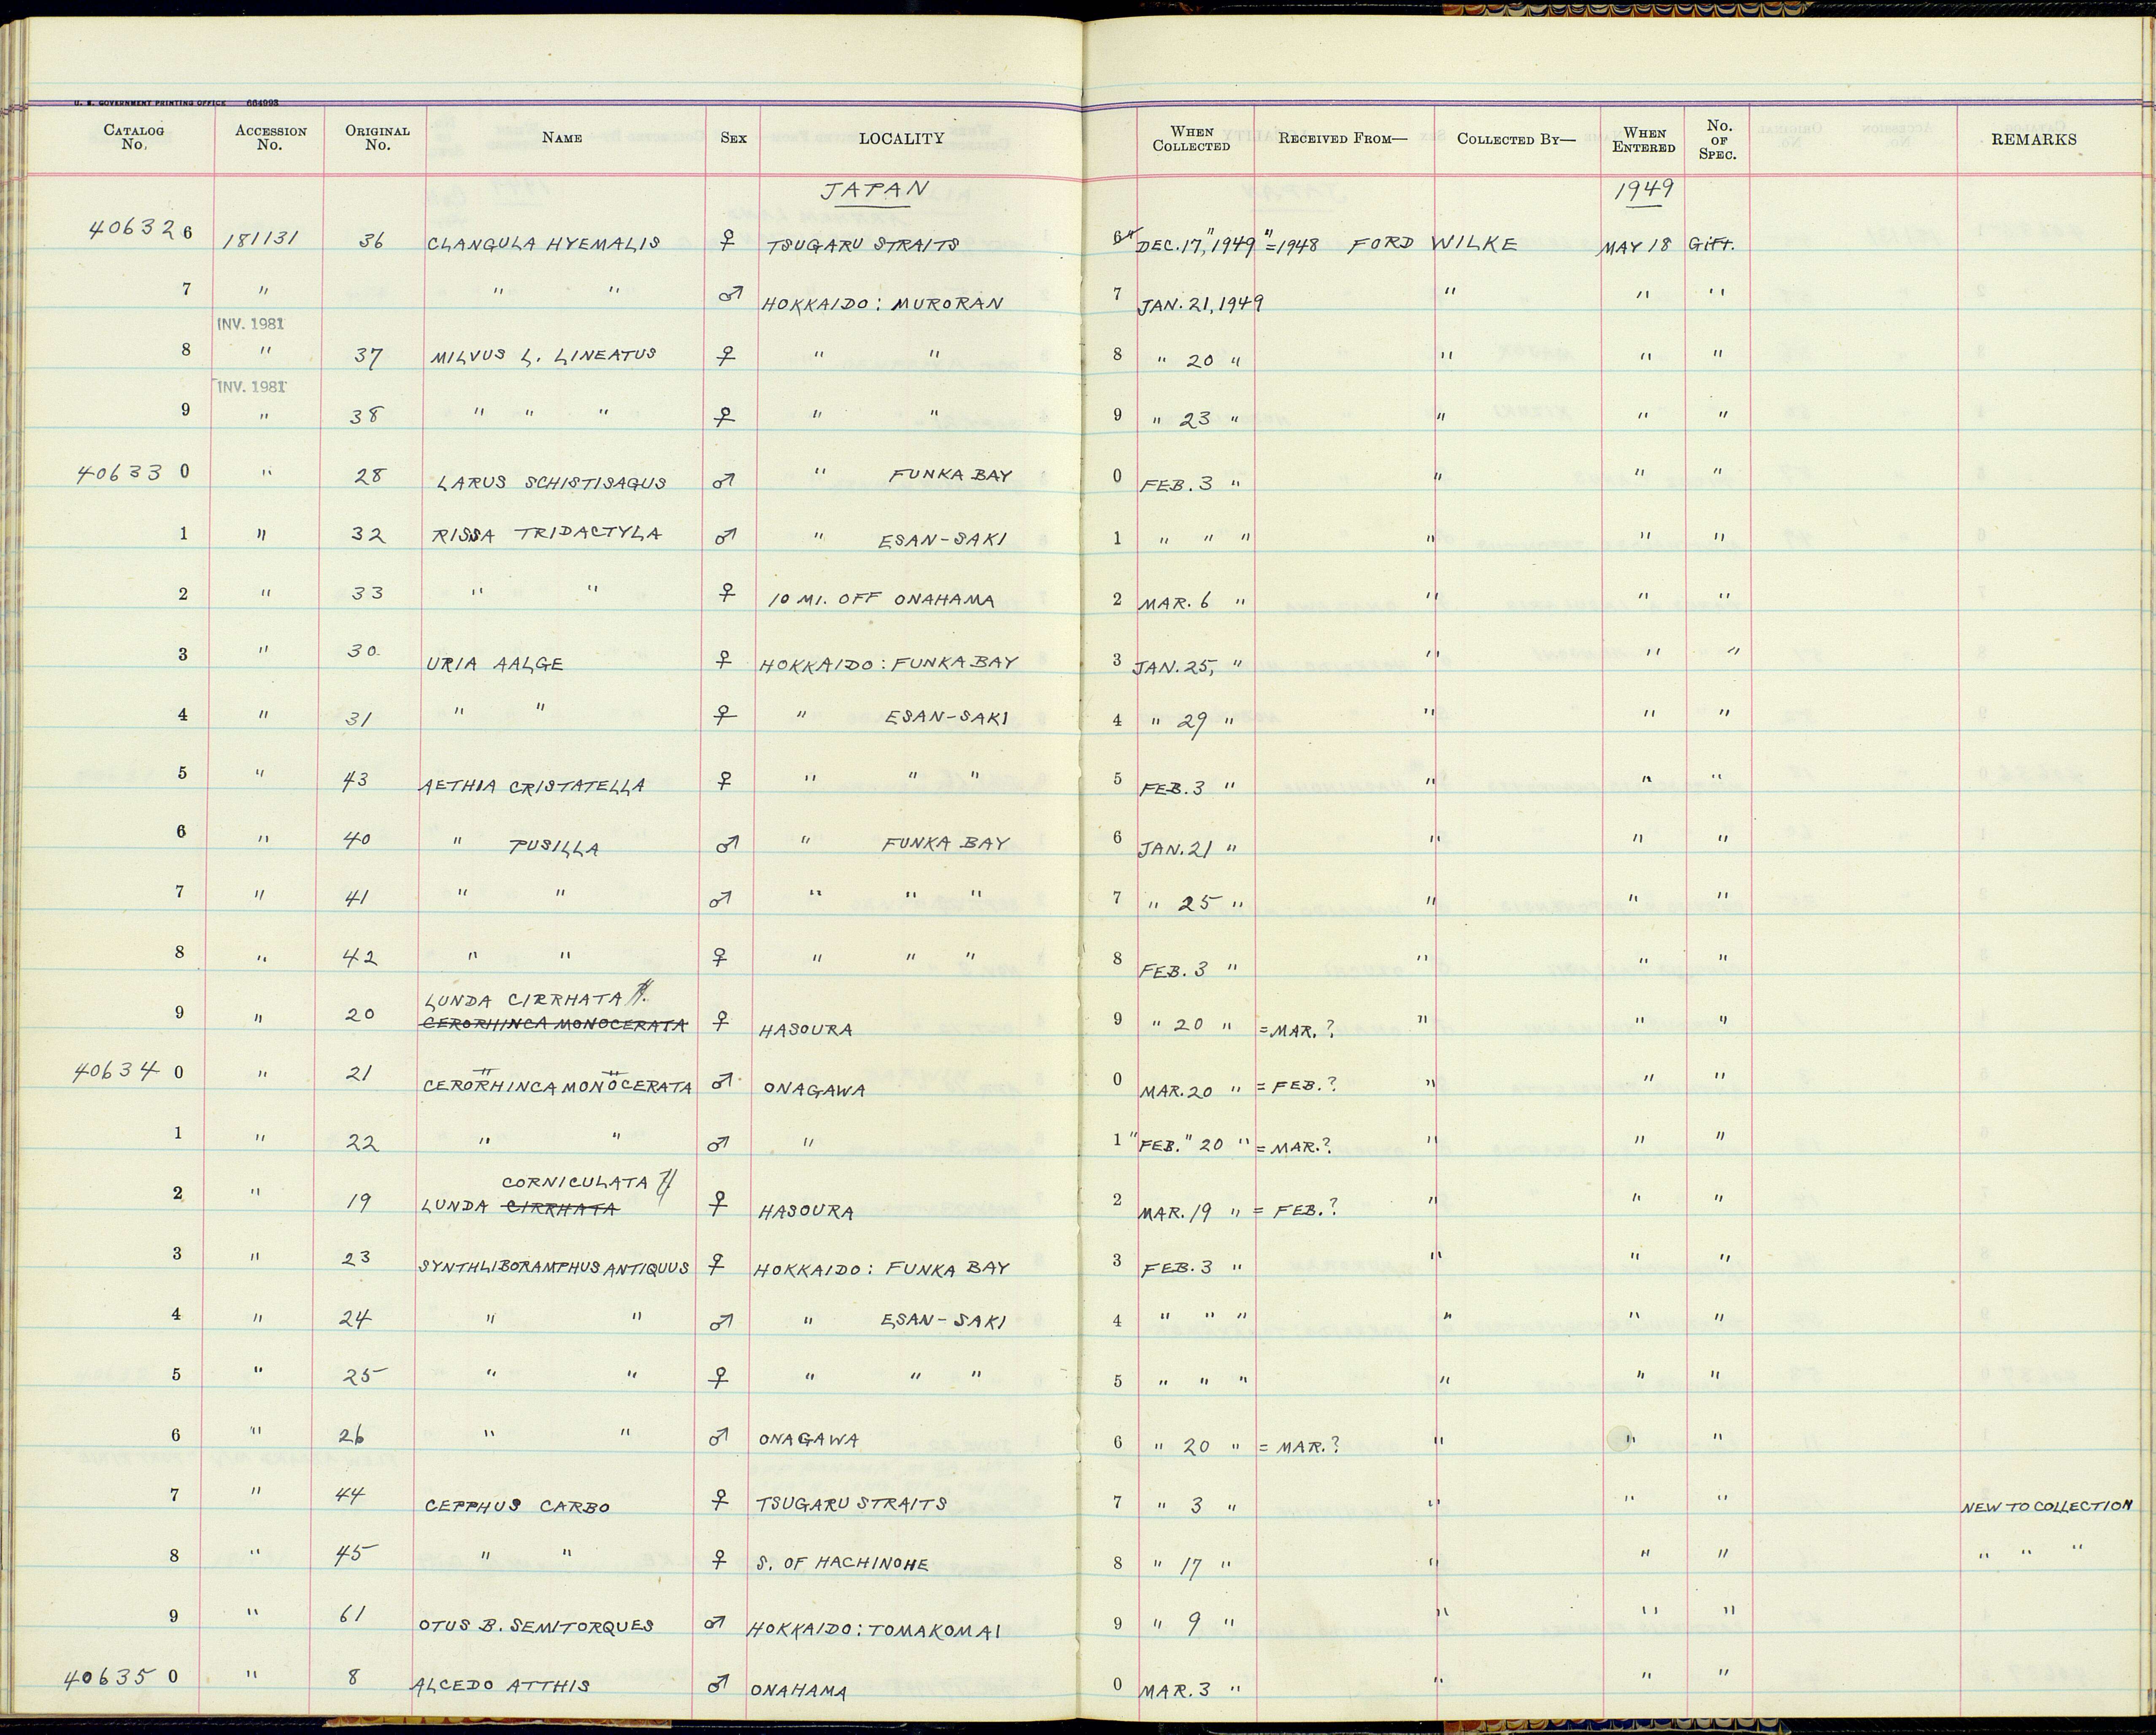 U. S. GOVERNMENT PRINTING OFFICE 664993
CATALOG No. ACCESSION No. ORIGINAL No. NAME SEX LOCALITY WHEN COLLECTED RECEIVED FROM— COLLECTED BY— WHEN ENTERED No. OF SPEC. REMARKS
JAPAN 1949
406326 181131 36 CLANGULA HYEMALIS ♀ TSUGARU STRAITS 6 DEC. 17, "1949" =1948 FORD WILKE MAY 18 Gift.
7 " " " ♂ HOKKAIDO: MURORAN 7 JAN. 21, 1949 " " "
INV. 1981
8 " 37 MILVUS L. LINEATUS ♀ " " 8 " 20 " " " "
INV. 1981
9 " 38 " " " ♀ " " 9 " 23 " " " "
406330 " 28 LARUS SCHISTISAGUS ♂ " FUNKA BAY 0 FEB. 3 " " " "
1 " 32 RISSA TRIDACTYLA ♂ " ESAN-SAKI 1 " " " " " "
2 " 33 " " ♀ 10 MI. OFF ONAHAMA 2 MAR. 6 " " " "
3 " 30. URIA AALGE ♀ HOKKAIDO: FUNKA BAY 3 JAN. 25, " " " "
4 " 31 " " ♀ " ESAN-SAKI 4 " 29 " " " "
5 " 43 AETHIA CRISTATELLA ♀ " " " 5 FEB. 3 " " " "
6 " 40 " PUSILLA ♂ " FUNKA BAY 6 JAN. 21 " " " "
7 " 41 " " ♂ " " " 7 " 25 " " " "
8 " 42 " " ♀ " " " 8 FEB. 3 " " " "
LUNDA CIRRHATA
9 " 20 CERORHINCA MONOCERATA ♀ HASOURA 9 " 20 " = MAR. ? " " "
406340 " 21 CERORHINCA MONOCERATA ♂ ONAGAWA 0 MAR. 20 " = FEB. ? " " "
1 " 22 " " ♂ " 1 "FEB." 20 " = MAR. ? " " "
CORNICULATA
2 " 19 LUNDA CIRRHATA ♀ HASOURA 2 MAR. 19 " = FEB. ? " " "
3 " 23 SYNTHLIBORAMPHUS ANTIQUUS ♀ HOKKAIDO: FUNKA BAY 3 FEB. 3 " " " "
4 " 24 " " ♂ " ESAN-SAKI 4 " " " " " "
5 " 25 " " ♀ " " " 5 " " " " " "
6 " 26 " " ♂ ONAGAWA 6 " 20 " = MAR. ? " " "
7 " 44 CEPPHUS CARBO ♀ TSUGARU STRAITS 7 " 3 " " " " NEW TO COLLECTION
8 " 45 " " ♀ S. OF HACHINOHE 8 " 17 " " " " " " "
9 " 61 OTUS B. SEMITORQUES ♂ HOKKAIDO: TOMAKOMAI 9 " 9 " " " "
406350 " 8 ALCEDO ATTHIS ♂ ONAHAMA 0 MAR. 3 " " " "